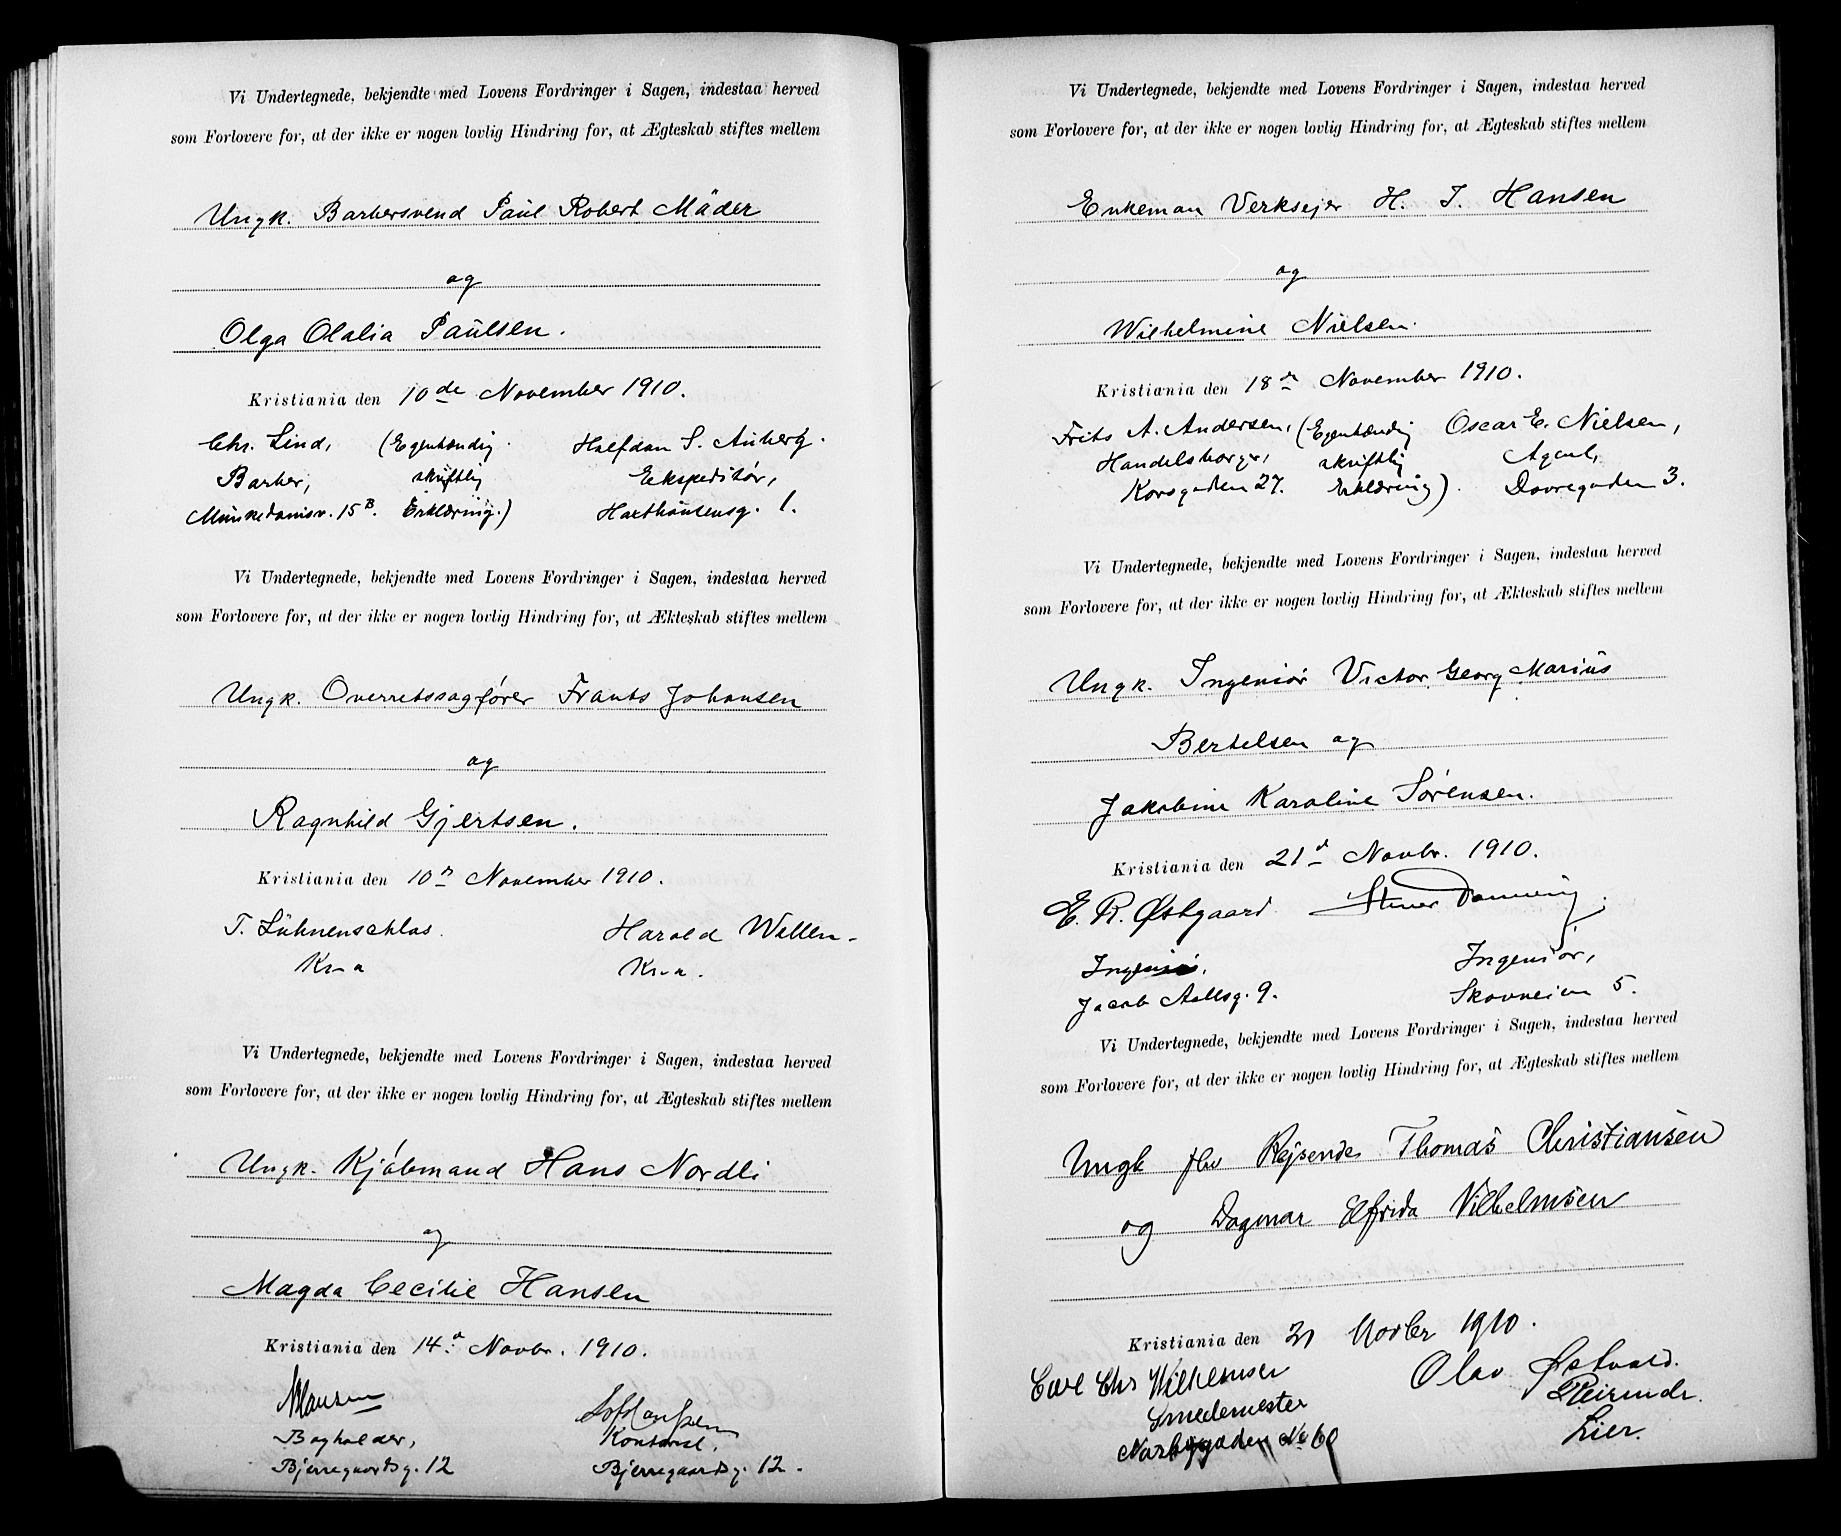 Vi Undertegnede, bekjendte med Lovens Fordringer i Sagen, indestaa herved
som Forlovere for, at der ikke er nogen lovlig Hindring for, at Ægteskab stiftes mellem
Ungk. Barbersvend Paul Robert Mäder
og
Olga Olalia Paulsen.
Kristiania den 10de November 1910.
Chr. Lind, (Egenhændig Halfdan S. Auberg.
Barber, skriftlig Ekspeditør,
Munkedamsv. 15B. Erklæring.) Harthausensg. 1.
Vi Undertegnede, bekjendte med Lovens Fordringer i Sagen, indestaa herved
som Forlovere for, at der ikke er nogen lovlig Hindring for, at Ækteskab stiftes mellem
Ungk. Overretssagfører Frants Johansen
og
Ragnhild Gjertsen.
Kristiania den 10de November 1910.
T. Lühnenschlos. Harald Willen
Kr-a Kr-a.
Vi Undertegnede, bekjendte med Lovens Fordringer i Sagen, indestaa herved
som Forlovere for, at der ikke er nogen lovlig Hindring for, at Ægteskab stiftes mellem
Ungk. Kjøbmand Hans Nordli
og
Magda Cecilie Hansen
Kristiania den 14d Novbr. 1910.
Hansen
Bogholder, Kontorist,
Bjerregaardsg. 12 Bjerregaardsg. 12.
Vi Undertegnede, bekjendte med Lovens Fordringer i Sagen, indestaa herved
som Forlovere for, at der ikke er nogen lovlig Hindring for, at Ægteskab stiftes mellem
Enkeman Verksejer H. J. Hansen
og
Wilhelmine Nielsen.
Kristiania den 18de November 1910.
Frits A. Andersen, (Egenhændig Oscar E. Nielsen,
Handelsborger, skriftlig Agent,
Korsgaden 27. Erklæring). Dovregaden 3.
Vi Undertegnede, bekjendte med Lovens Fordringer i Sagen, indestaa herved
som Forlovere for, at der ikke er nogen lovlig Hindring for, at Ækteskab stiftes mellem
Ungk. Ingeniør Victor Georg Marius
Bertelsen og
Jakobine Karoline Sørensen.
Kristiania den 21d Novbr. 1910.
E. R. Østgaard
Ingeniør. Ingeniør,
Jacob Aallsg. 9. Skovveien 5.
Vi Undertegnede, bekjendte med Lovens Fordringer i Sagen, indestaa herved
som Forlovere for, at der ikke er nogen lovlig Hindring for, at Ægteskab stiftes mellem
Ungk fhv Rejsende Thomas Christiansen
og Dagmar Elfrida Vilhelmsen
Kristiania den 21 Novbr 1910.
Carl Chr Wilhelmsen Olav Østvold.
Smedemester
Norbygaden No 60 Lier.